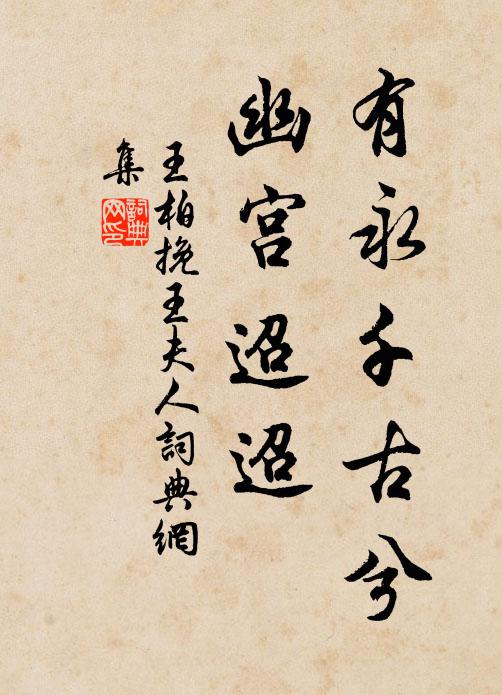 有永千古兮
幽宫迢迢
王柏挽王夫人詞典網
集
詞典網印